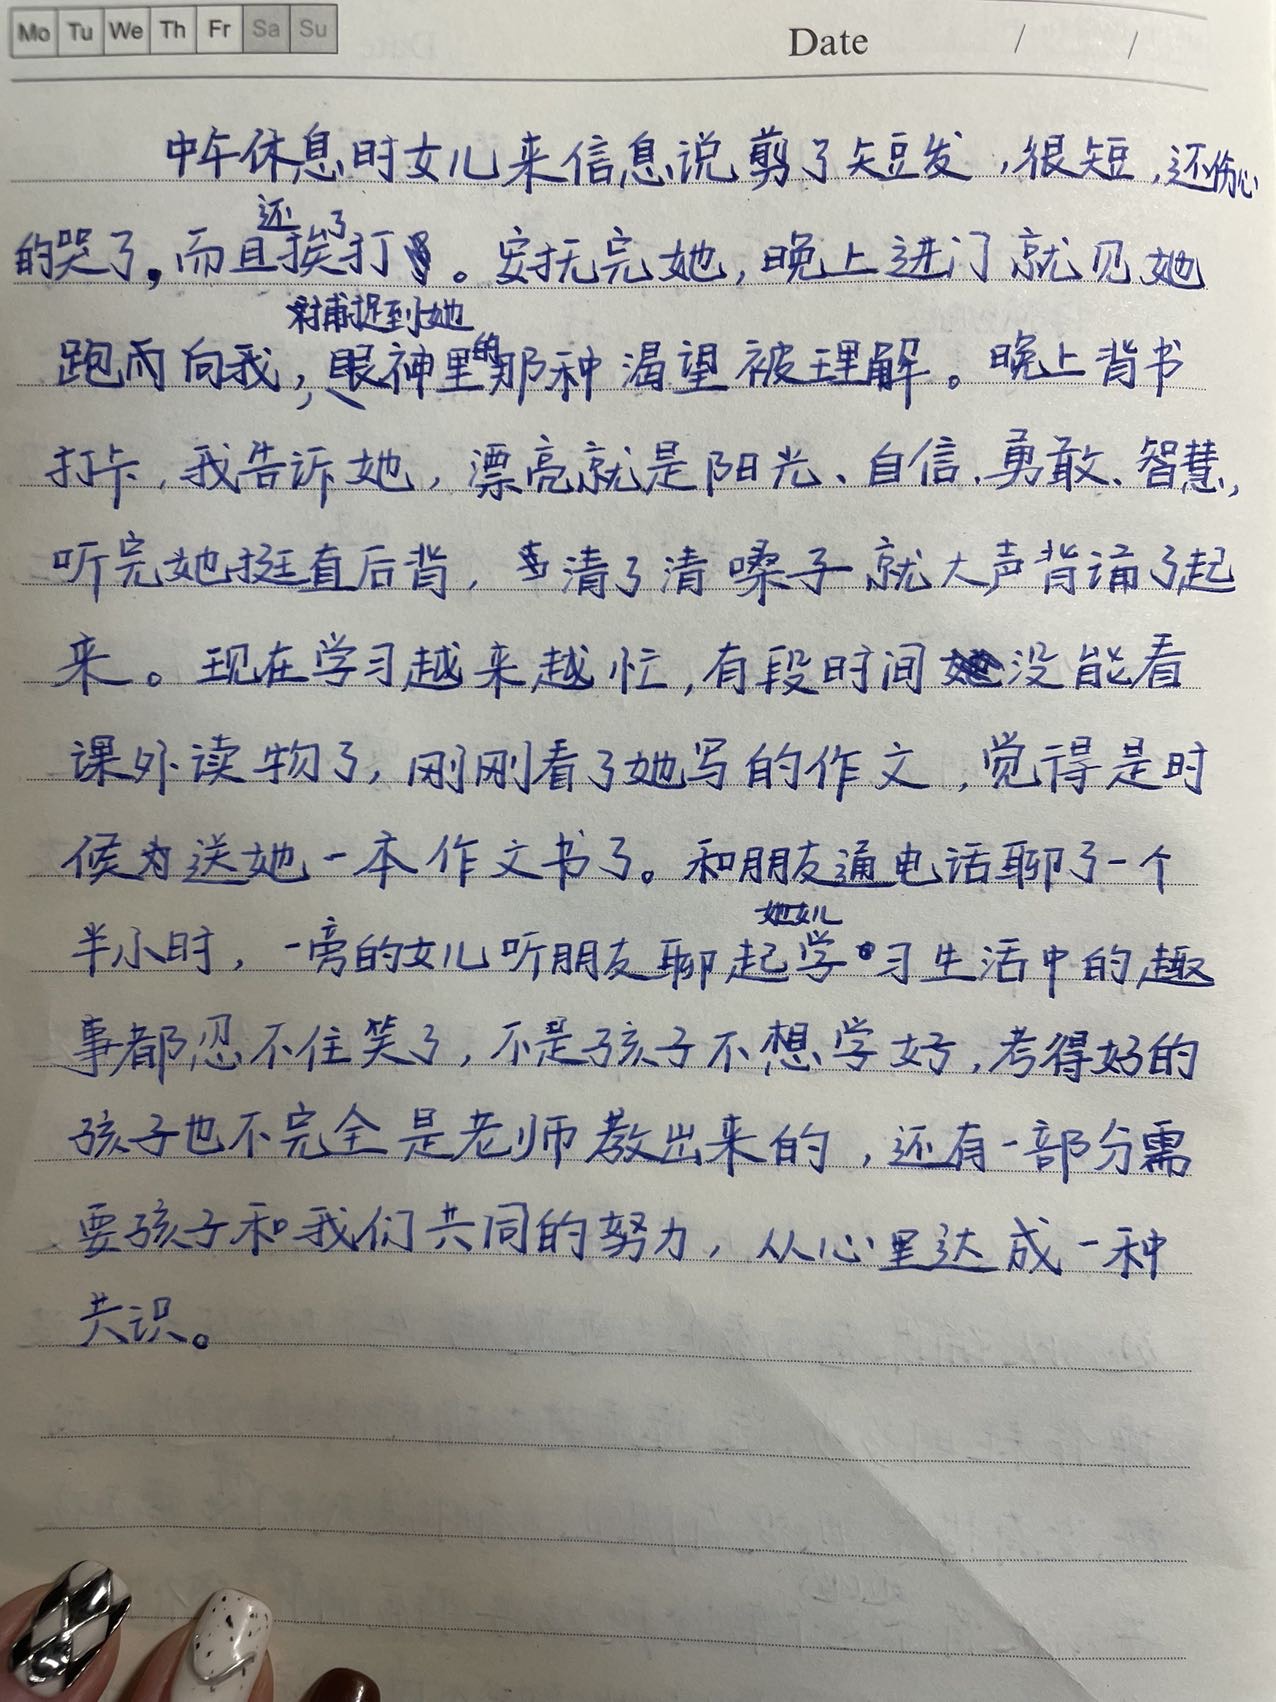 Mo Tu We Th Fr Sa Su
Date / /
中午休息时女儿来信息说剪了短发,很短,还伤心
的哭了,而且还挨了打。安抚完她,晚上进门就见她
跑而向我,捕捉到她眼神里的那种渴望被理解。晚上背书
打卡,我告诉她,漂亮就是阳光、自信、勇敢、智慧,
听完她挺直后背,清了清嗓子就大声背诵了起
来。现在学习越来越忙,有段时间没能看
课外读物了,刚刚看了她写的作文,觉得是时
候为送她一本作文书了。和朋友通电话聊了一个
半小时,一旁的女儿听朋友聊起她女儿学习生活中的趣
事都忍不住笑了,不是孩子不想学好,考得好的
孩子也不完全是老师教出来的,还有一部分需
要孩子和我们共同的努力,从心里达成一种
共识。